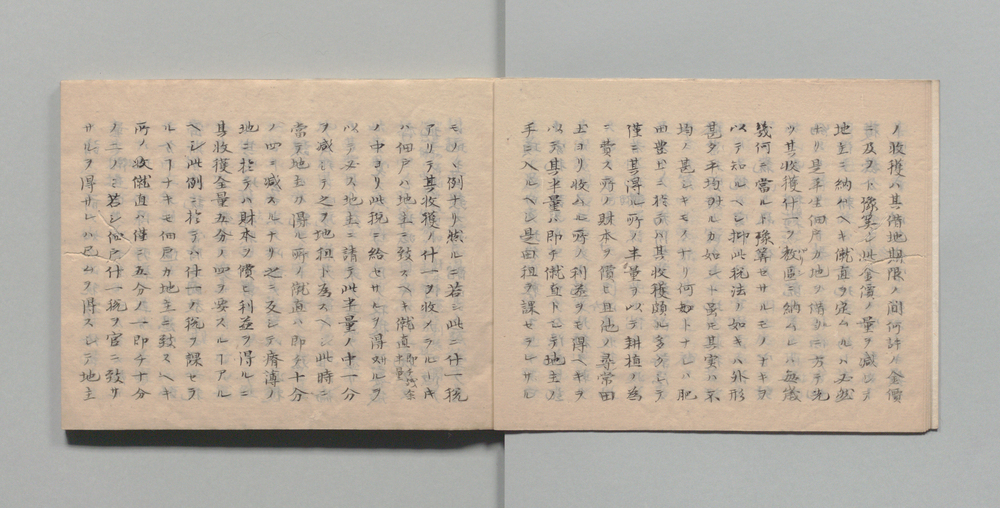 ノ收獲ハ其借地期限ノ間何許ノ金價
ニ及フト豫算シ此金價ノ量ヲ減シテ
地主ニ納ムヘキ僦直ヲ定ムルハ必然
ナリ是年佃戸カ地ヲ借ルニ方テ先
ツ其收獲什一ヲ教區ニ納ムルハ毎歳
幾何ニ當ルト豫算セサルモノナキヲ
以テ知ルヘシ抑此税法ノ如キハ外形
甚タ平均ナルカ如シト雖𪜈其実ハ不
均ノ甚シキモノナリ何如トナレハ肥
田豊土ニ於テハ其收獲頗ル多クシテ
僅ニ其得ル所ノ半量ヲ以テ耕植ノ為
ニ費ス所ノ財本ヲ償ヒ且他ノ尋常田
土ヨリ收ムル所ノ利益ヲモ得ヘキヲ
以テ其半量ハ即チ僦直トシテ地主ノ
手ニ入ルヘシ是田租ヲ課セラレサル
モノヽ例ナリ然ルニ若シ此ニ什一税
アリテ其收獲ノ什一ヲ收メラルヽトキ
ハ佃戸ハ地主ニ致スヘキ僦直即チ残余ノ半量
ノ中ヨリ此税ニ給セサルヲ得ス故ヲ
以テ必ス地主ニ請テ此半量ノ中一分
ヲ減シテ之ヲ地租ト為スヘシ此時ニ
當テ地主カ得ル所ノ僦直ハ即チ十分
ノ四ニ減スルナリ之ニ反シテ瘠薄ノ
地ニ於テハ財本ヲ償ヒ利益ヲ得ルニ
其收獲全量五分ノ四ヲ要スルヿアル
ヘシ此例ニ於テハ什一ノ税ヲ課セラ
ルヽヿナキモ佃戸カ地主ニ致スヘキ
所ノ收僦直ハ僅ニ五分ノ一即チ十分
ノ二ノミ若シ佃戸什一税ヲ官ニ致サ
サルヲ得サレハ已ムヲ得スシテ地主